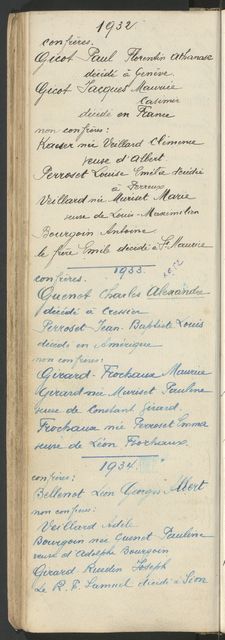 1932
confrères.
Gicot Paul Florentin Athanase
décédé à Genève.
Gicot Jacques Maurice
Casimir
décédé en France
non confrères:
Kaeser née Veillard Clémence
veuve d'Albert
Perroset Louise Emélie décédée
à Perreux
Veillard née Muriset Marie
veuve de Louis-Maximilien
Bourgoin Antoine
le frère Emile décédé à St. Maurice
1933.
confrères.
Quenet Charles Alexandre
décédé à Cressier
Perroset Jean-Baptiste Louis
décédé en Amérique
non confrères:
Girard-Frochaux Maurice
Girard née Muriset Pauline
veuve de Constant Girard.
Frochaux née Perroset Emma
veuve de Léon Frochaux.
1934.
confrères:
Bellenot Léon Georges Albert
non confrères:
Veillard Adèle
Bourgoin née Quenet Pauline
veuve d'Adolphe Bourgoin
Girard Ruedin Joseph
Le R. P. Samuel décédé à Sion